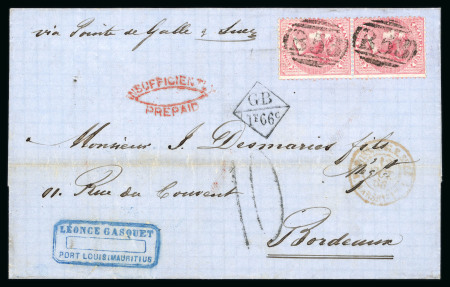 via Pointe de Galle & Suez
INSUFFICIENTLY
PREPAID
GB
1F66c
Monsieur J. Desmaries fils
Négt
91. Rue du Couvent
Bordeaux
LÉONCE GASQUET
PORT LOUIS MAURITIUS